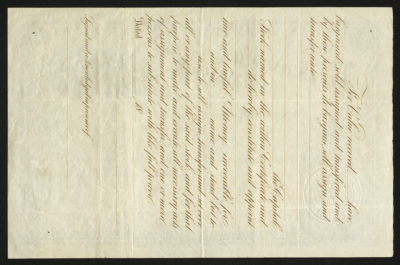 For Value Received have
bargained, sold, assigned and transferred and
by these presents do bargain, sell, assign and
transfer unto
the Capital
Stock named in the within Certificate, and
do hereby constitute and appoint
true and lawful Attorney irrevocable for
and in name and stead but to
use to sell, assign, transfer and set over
all or any part of the said stock, and for that
purpose to make and execute all necessary acts
of assignment and transfer, and one or more
persons to substitute with like full power.
Dated 18
Signed and acknowledged in presence of